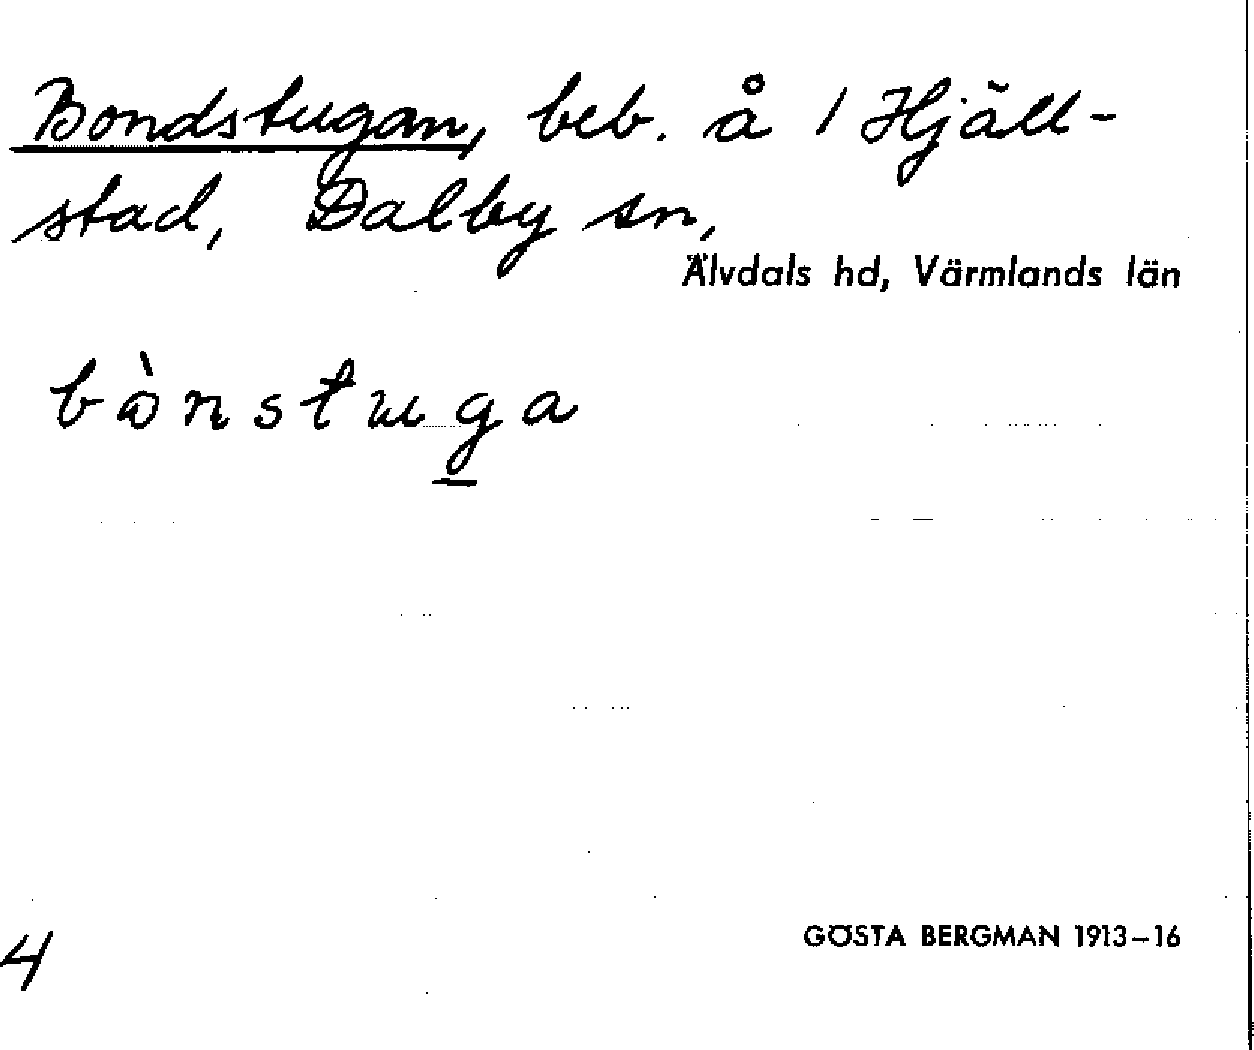 Bondstugan, beb. å 1 Hjäll-
stad, Dalby sn,
Älvdals hd, Värmlands län
bònstuga
4
GÖSTA BERGMAN 1913–16